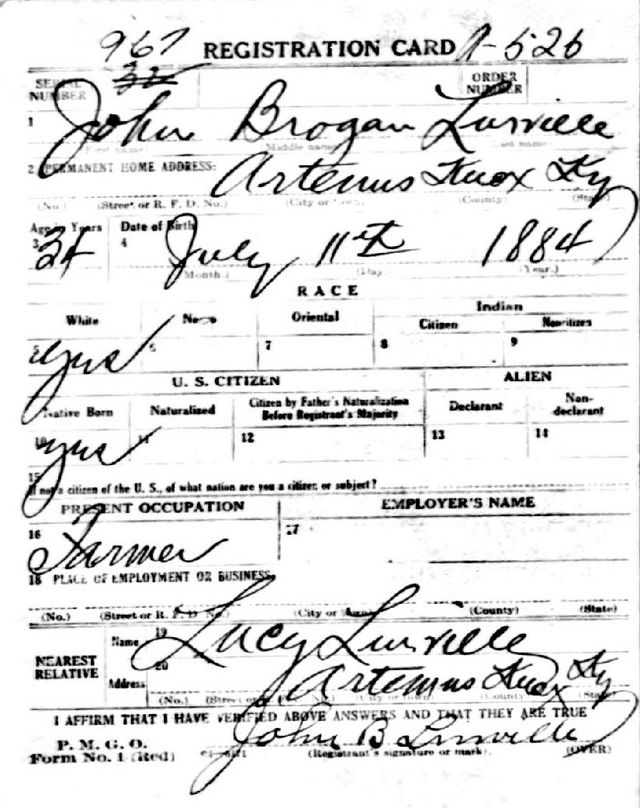 967 REGISTRATION CARD A-526
SERIAL NUMBER 32 ORDER NUMBER
1 John Brogan Linville
(First name) (Middle name) (Last name)
2 PERMANENT HOME ADDRESS:
Artemus Knox Ky
(No.) (Street or R. F. D. No.) (City or town) (County) (State)
Age in Years Date of Birth
3 34 4 July 11th 1884
(Month.) (Day.) (Year.)
RACE
White Negro Oriental Indian
Citizen Noncitizen
5 yes 6 7 8 9
U. S. CITIZEN ALIEN
Native Born Naturalized Citizen by Father's Naturalization Before Registrant's Majority Declarant Non-declarant
10 yes 11 12 13 14
15
If not a citizen of the U. S., of what nation are you a citizen or subject?
PRESENT OCCUPATION EMPLOYER'S NAME
16 Farmer 17
18 PLACE OF EMPLOYMENT OR BUSINESS
(No.) (Street or R. F. D. No.) (City or town) (County) (State)
NEAREST RELATIVE Name 19 Lucy Linville
Address 20 Artemus Knox Ky
(No.) (Street or R. F. D. No.) (City or town) (County) (State)
I AFFIRM THAT I HAVE VERIFIED ABOVE ANSWERS AND THAT THEY ARE TRUE
P. M. G. O.
Form No. 1 (Red) John B Linville
(Registrant's signature or mark) (OVER)